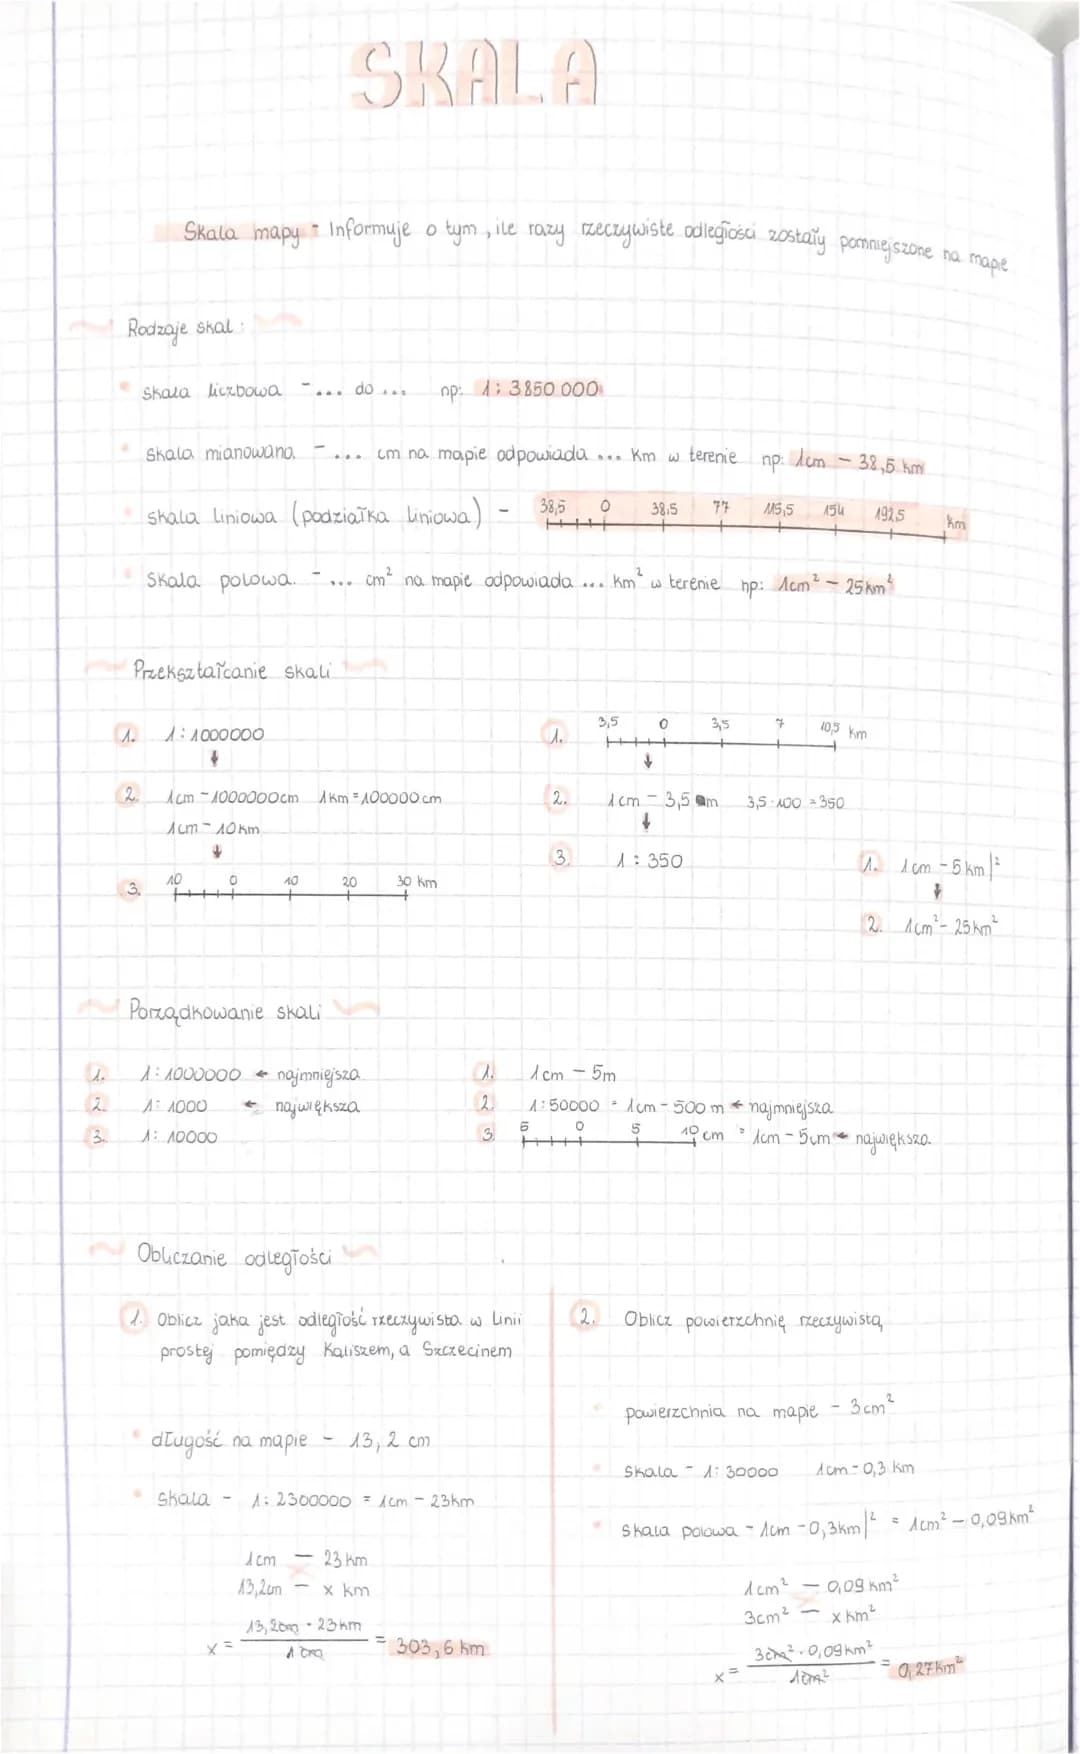 SKALA
Skala mapy - Informuje o tym, ile razy rzeczywiste odległości zostały pomniejszone na mapie
Rodzaje skal:
skala liczbowa - ... do ... np: 1:3850 000
skala mianowana - ... cm na mapie odpowiada ... km w terenie np: 1cm - 38,5 km
skala liniowa (podziałka liniowa) - 38,5 0 38,5 77 115,5 154 192,5 km
skala polowa - ... cm² na mapie odpowiada ... km² w terenie np: 1cm² - 25km²
Przekształcanie skali
1. 1:1000000
↓
2. 1cm - 1000000cm 1km = 100000cm
1cm - 10km
↓
3. 10 0 10 20 30 km
1. 3,5 0 3,5 7 10,5 km
↓
2. 1cm - 3,5 m 3,5 · 100 = 350
↓
3. 1 : 350
1. 1cm - 5km|²
↓
2. 1cm² - 25km²
Porządkowanie skali
1. 1:1000000 ← najmniejsza
2. 1:1000 ← największa
3. 1:10000
1. 1cm - 5m
2. 1:50000 = 1cm - 500m ← najmniejsza
3. 5 0 5 10 cm = 1cm - 5cm ← największa
Obliczanie odległości
1. Oblicz jaka jest odległość rzeczywista w linii
prostej pomiędzy Kaliszem, a Szczecinem
długość na mapie - 13,2 cm
skala - 1:2300000 = 1cm - 23km
1cm — 23 km
13,2cm — x km
x = 13,2cm · 23km / 1cm = 303,6 km
2. Oblicz powierzchnię rzeczywistą
powierzchnia na mapie - 3cm²
skala - 1:30000 1cm - 0,3 km
skala polowa - 1cm - 0,3km|² = 1cm² - 0,09km²
1cm² — 0,09 km²
3cm² — x km²
x = 3cm² · 0,09km² / 1cm² = 0,27km²